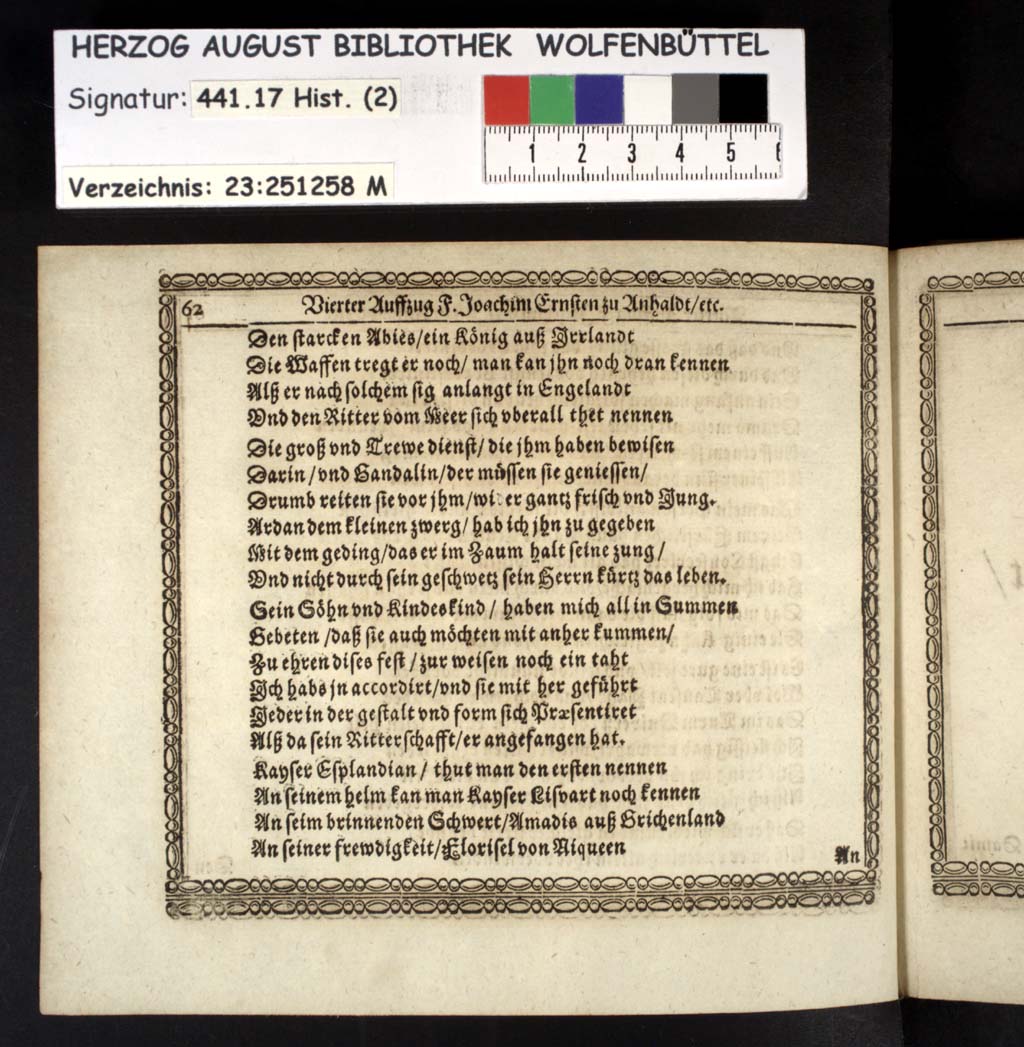 HERZOG AUGUST BIBLIOTHEK WOLFENBÜTTEL
Signatur: 441.17 Hist. (2)
1 2 3 4 5 6
Verzeichnis: 23:251258 M
62 Vierter Auffzug F. Joachim Ernsten zu Anhaldt/etc.
Den starcken Abies/ein König auß Jrrlandt
Die Waffen tregt er noch/ man kan jhn noch dran kennen
Alß er nach solchem sig anlangt in Engelandt
Vnd den Ritter vom Meer sich vberall thet nennen
Die groß vnd Trewe dienst/ die jhm haben bewisen
Darin/vnd Gandalin/der müssen sie geniessen/
Drumb reiten sie vor jhm/wi er gantz frisch vnd Jung.
Ardan dem kleinen zwerg/ hab ich jhn zu gegeben
Mit dem geding/das er im Zaum halt seine zung/
Vnd nicht durch sein geschwetz sein Herrn kürtz das leben.
Sein Söhn vnd Kindeskind/ haben mich all in Summen
Gebeten/daß sie auch möchten mit anher kummen/
Zu ehren dises fest/zur weisen noch ein taht
Jch habs jn accordirt/vnd sie mit her geführt
Jeder in der gestalt vnd form sich Præsentiret
Alß da sein Ritterschafft/er angefangen hat.
Kayser Esplandian/ thut man den ersten nennen
An seinem helm kan man Kayser Lisvart noch kennen
An seim brinnenden Schwert/Amadis auß Grichenland
An seiner frewdigkeit/Florisel von Niqueen
An